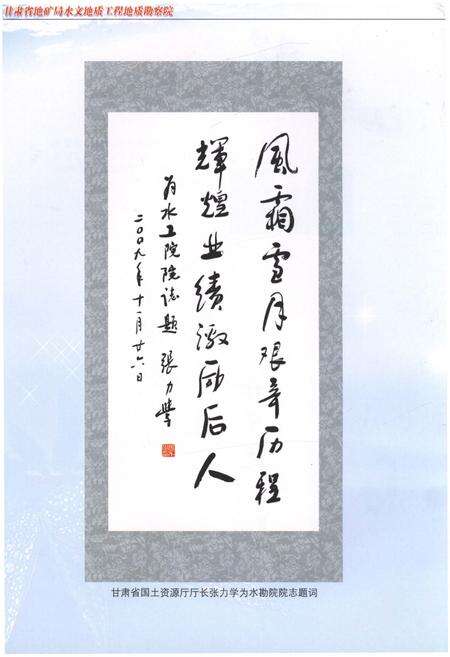 甘肃省地矿局水文地质工程地质勘察院
風霜雪月艰辛历程
輝煌业绩激励后人
为水工院院志題 張力學
二〇〇九年十一月廿六日
甘肃省国土资源厅厅长张力学为水勘院院志题词